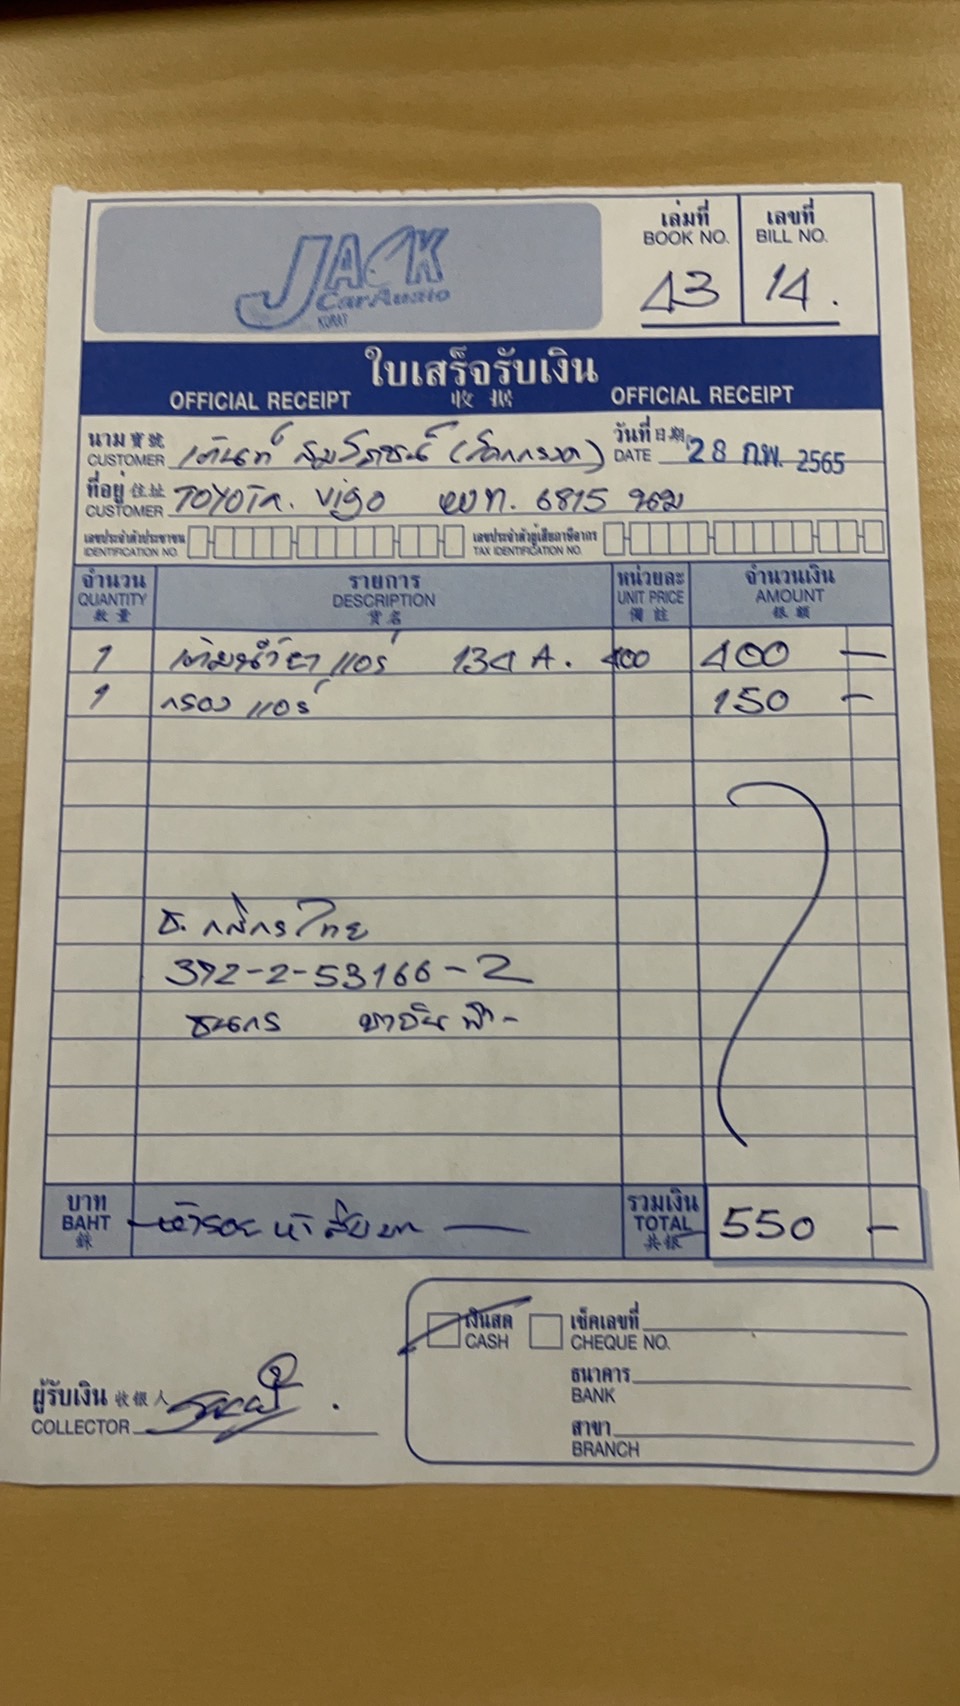 JACK
Car Audio
KORAT
เล่มที่ เลขที่
BOOK NO. BILL NO.
43 14.
ใบเสร็จรับเงิน
OFFICIAL RECEIPT 收据 OFFICIAL RECEIPT
นาม 寶號 วันที่ 日期
CUSTOMER เต้นท์ (โคกกรวด) DATE 28 ก.พ. 2565
ที่อยู่ 住址
CUSTOMER TOYOTA. Vigo 6815 นม
เลขประจำตัวประชาชน เลขประจำตัวผู้เสียภาษีอากร
IDENTIFICATION NO. TAX IDENTIFICATION NO.
จำนวน รายการ หน่วยละ จำนวนเงิน
QUANTITY DESCRIPTION UNIT PRICE AMOUNT
數量 貨名 備註 銀額
1 เติมน้ำยาแอร์ 134 A. 400 400 -
1 กรองแอร์ 150 -
ธ. กสิกรไทย
392-2-53166-2
ธนกร
บาท รวมเงิน
BAHT ห้าร้อยห้าสิบบาท TOTAL 550 -
銖 共銀
เงินสด เช็คเลขที่
CASH CHEQUE NO.
ธนาคาร
BANK
ผู้รับเงิน 收銀人 สาขา
COLLECTOR BRANCH